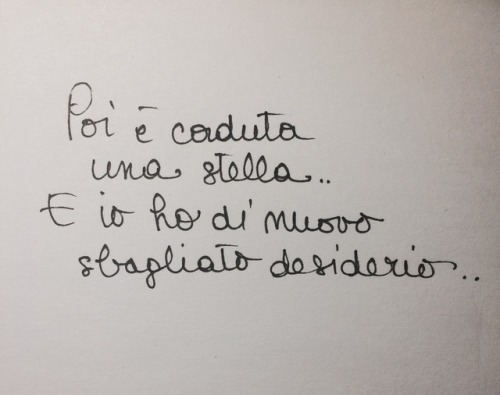 Poi è caduta
una stella..
E io ho di nuovo
sbagliato desiderio..